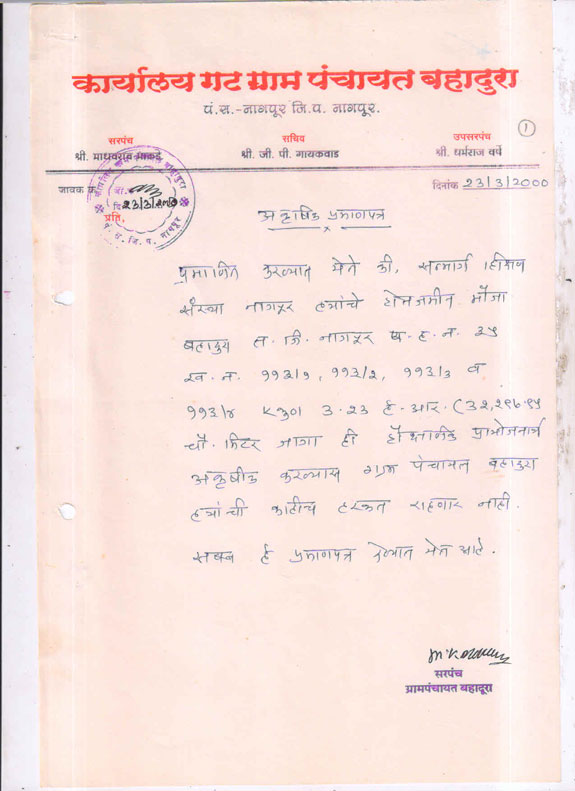 कार्यालय गट ग्राम पंचायत बहादुरा
पं.स.-नागपूर जि.प. नागपूर.
①
सरपंच सचिव उपसरपंच
श्री. माधवराव श्री. जी. पी. गायकवाड श्री. धर्मराज वर्पे
जावक क्र. दिनांक 23/3/2000
जा.
दि. 23/3/2000
पं. स. जि. प. नागपूर
प्रति,
अकृषिक प्रमाणपत्र
प्रमाणित करण्यात येते की, सन्मार्ग शिक्षण
संस्था नागपूर ह्यांचे शेतजमीन मौजा
बहादुरा त. जि. नागपूर प. ह. न. ३५
ख. न. ११३/१, ११३/२, ११३/३ व
११३/४ एकुण ३.२३ हे. आर. (३२,२९६.९५
चौ. मिटर जागा ही शैक्षणिक प्रायोजनार्थ
अकृषीक करण्यास ग्राम पंचायत बहादुरा
ह्यांची काहीच हरकत राहणार नाही.
सबब हे प्रमाणपत्र देण्यात येत आहे.
सरपंच
ग्रामपंचायत बहादूरा